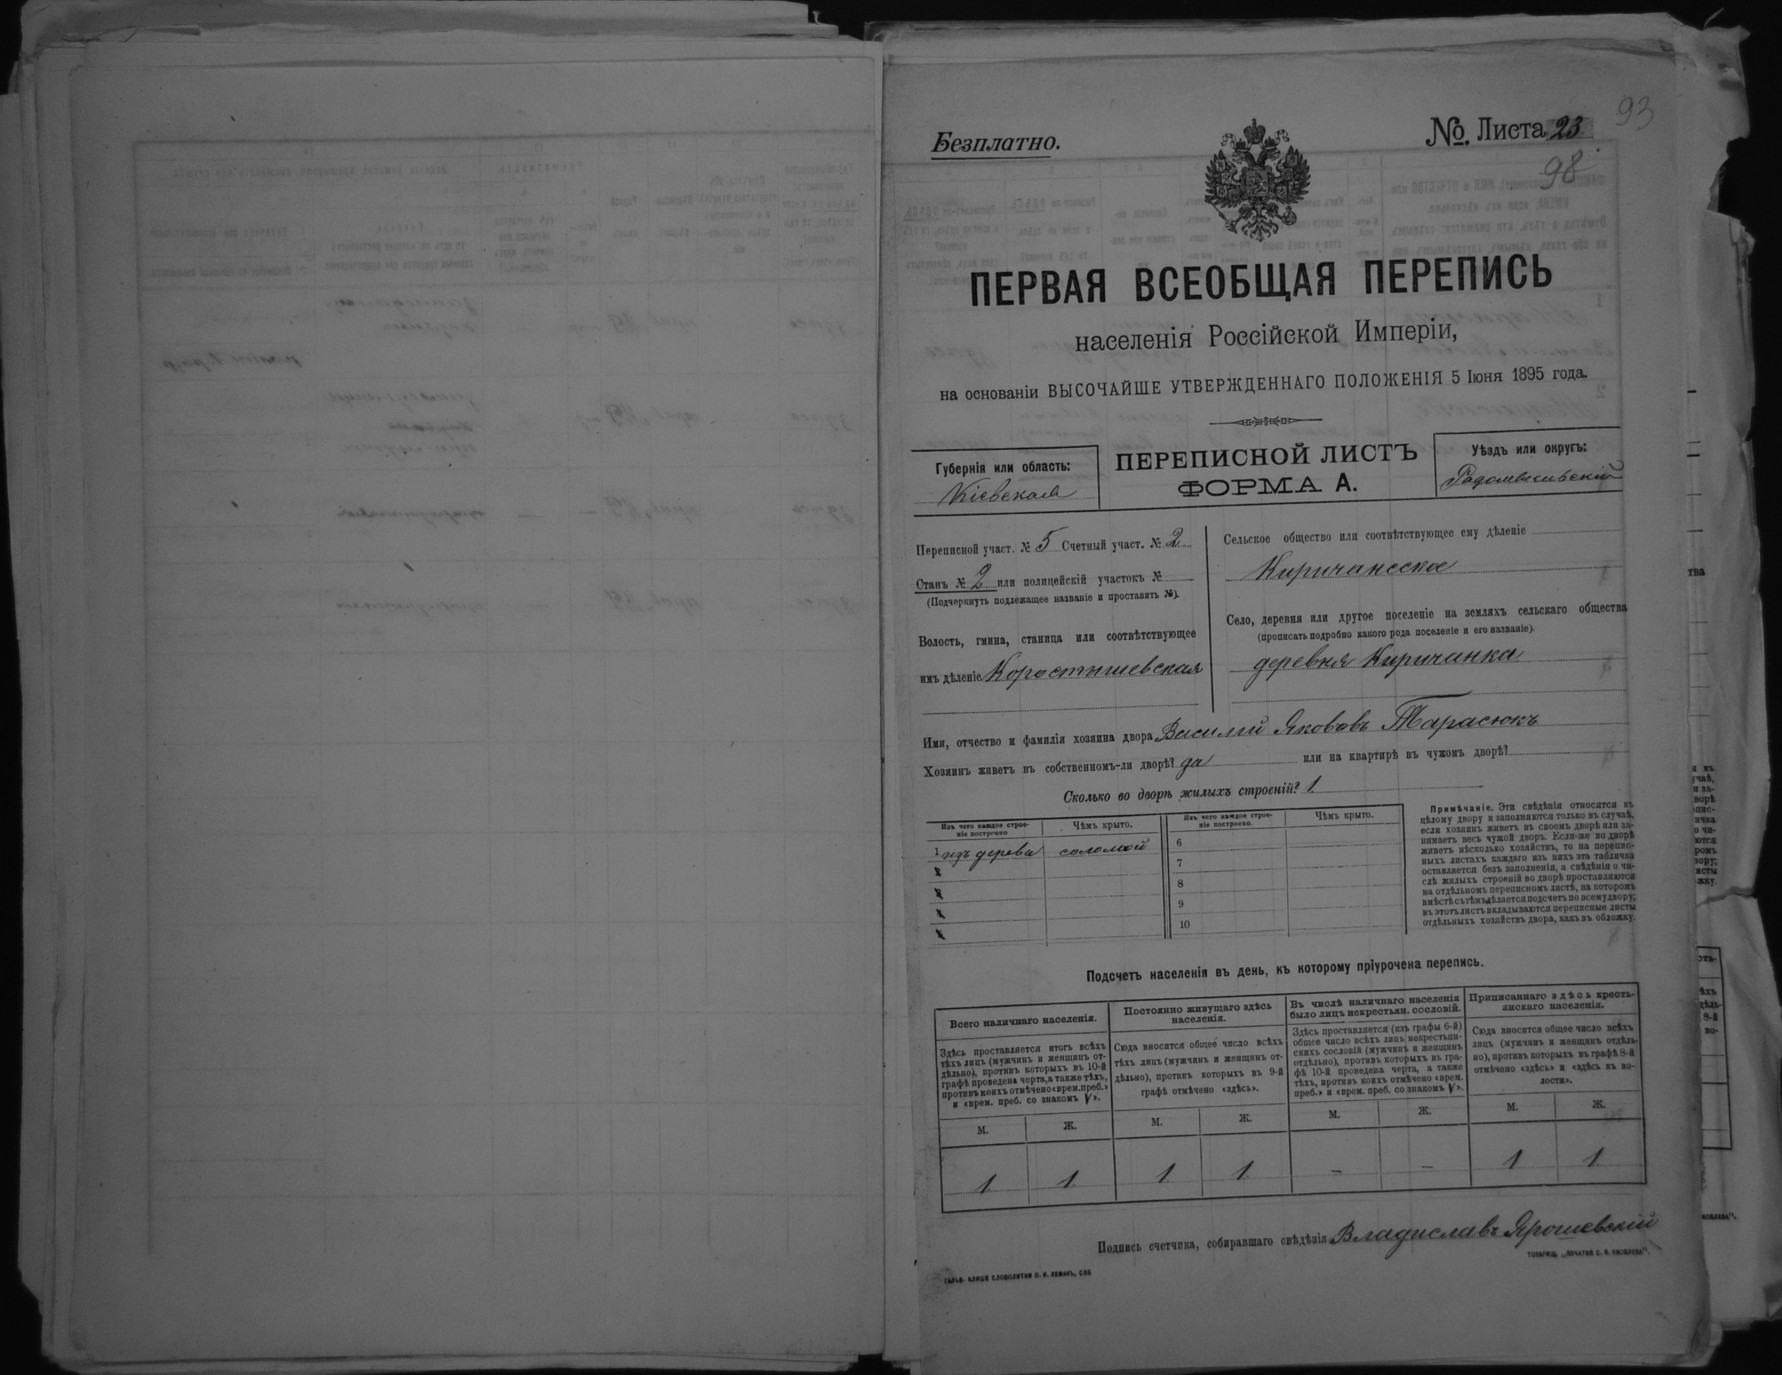 93
Безплатно.
№. Листа 23
98
ПЕРВАЯ ВСЕОБЩАЯ ПЕРЕПИСЬ
населенія Россійской Имперіи,
на основаніи ВЫСОЧАЙШЕ УТВЕРЖДЕННАГО ПОЛОЖЕНІЯ 5 Іюня 1895 года.
Губернія или область:
Кіевская
ПЕРЕПИСНОЙ ЛИСТЪ
ФОРМА А.
Уѣздъ или округъ:
Радомысльскій
Переписной участ. № 5 Счетный участ. № 2
Станъ № 2 или полицейскій участокъ №
(Подчеркнуть подлежащее названіе и проставить №).
Волость, гмина, станица или соотвѣтствующее
имъ дѣленіе Коростышевская
Сельское общество или соотвѣтствующее ему дѣленіе
Киричанское
Село, деревня или другое поселеніе на земляхъ сельскаго общества
(прописать подробно какого рода поселеніе и его названіе).
деревня Киричанка
Имя, отчество и фамилія хозяина двора Василій Яковъ Тарасюкъ
Хозяинъ живетъ въ собственномъ-ли дворѣ? да или на квартирѣ въ чужомъ дворѣ?
Сколько во дворѣ жилыхъ строеній? 1
Изъ чего каждое строе-
ніе построено
Чѣмъ крыто.
1 изъ дерева соломой
Изъ чего каждое строе-
ніе построено.
Чѣмъ крыто.
6
7
8
9
10
Примѣчаніе. Эти свѣдѣнія относятся къ
цѣлому двору и заполняются только въ случаѣ,
если хозяинъ живетъ въ своемъ дворѣ или за-
нимаетъ весь чужой дворъ. Если-же во дворѣ
живетъ нѣсколько хозяйствъ, то на перепис-
ныхъ листахъ каждаго изъ нихъ эта табличка
оставляется безъ заполненія, а свѣдѣнія о чи-
слѣ жилыхъ строеній во дворѣ проставляются
на отдѣльномъ переписномъ листѣ, на которомъ
вмѣстѣ съ тѣмъ дѣлается подсчетъ по всему двору;
въ этотъ листъ вкладываются переписные листы
отдѣльныхъ хозяйствъ двора, какъ въ обложку.
Подсчетъ населенія въ день, къ которому пріурочена перепись.
Всего наличнаго населенія.
Постоянно живущаго здѣсь
населенія.
Въ числѣ наличнаго населенія
было лицъ некрестьян. сословій.
Приписаннаго здѣсь кресть-
янскаго населенія.
Здѣсь проставляется итогъ всѣхъ
тѣхъ лицъ (мужчинъ и женщинъ от-
дѣльно), противъ которыхъ въ 10-й
графѣ проведена черта, а также тѣхъ,
противъ коихъ отмѣчено «врем. преб.»
и «врем. преб. со знакомъ V».
Сюда вносится общее число всѣхъ
тѣхъ лицъ (мужчинъ и женщинъ от-
дѣльно), противъ которыхъ въ 9-й
графѣ отмѣчено «здѣсь».
Здѣсь проставляется (изъ графы 6-й)
общее число всѣхъ лицъ некрестьян-
скихъ сословій (мужчинъ и женщинъ
отдѣльно), противъ которыхъ въ гра-
фѣ 10-й проведена черта, а также
тѣхъ, противъ коихъ отмѣчено «врем.
преб.» и «врем. преб. со знакомъ V».
Сюда вносится общее число всѣхъ
лицъ (мужчинъ и женщинъ отдѣль-
но), противъ которыхъ въ графѣ 8-й
отмѣчено «здѣсь» и «здѣсь къ во-
лости».
М. Ж. М. Ж. М. Ж. М. Ж.
1 1 1 1 – – 1 1
Подпись счетчика, собиравшаго свѣдѣнія Владиславъ Ярошевскій
ГАЛЬВ. КЛИШЕ СЛОВОЛИТНИ О. И. ЛЕМАНЪ, СПБ
ТОВАРИЩ. „ПЕЧАТНЯ С. П. ЯКОВЛЕВА".